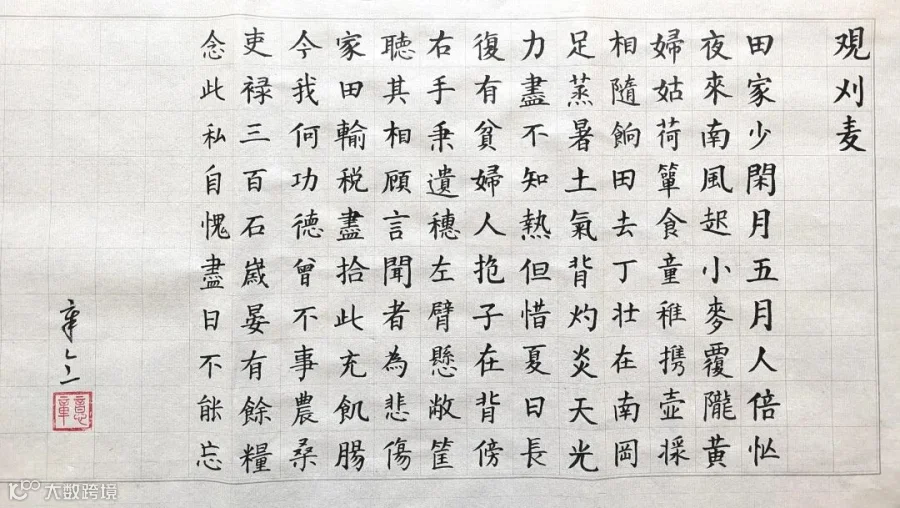 覌刈麦
田家少閑月五月人倍忙
夜來南風起小麥覆隴黃
婦姑荷簞食童稚携壺漿
相隨餉田去丁壯在南岡
足蒸暑土氣背灼炎天光
力盡不知熱但惜夏日長
復有貧婦人抱子在背傍
右手秉遺穗左臂懸敝筐
聽其相顧言聞者為悲傷
家田輸税盡拾此充飢腸
今我何功德曾不事農桑
吏禄三百石歲晏有餘糧
念此私自愧盡日不能忘
大数跨境